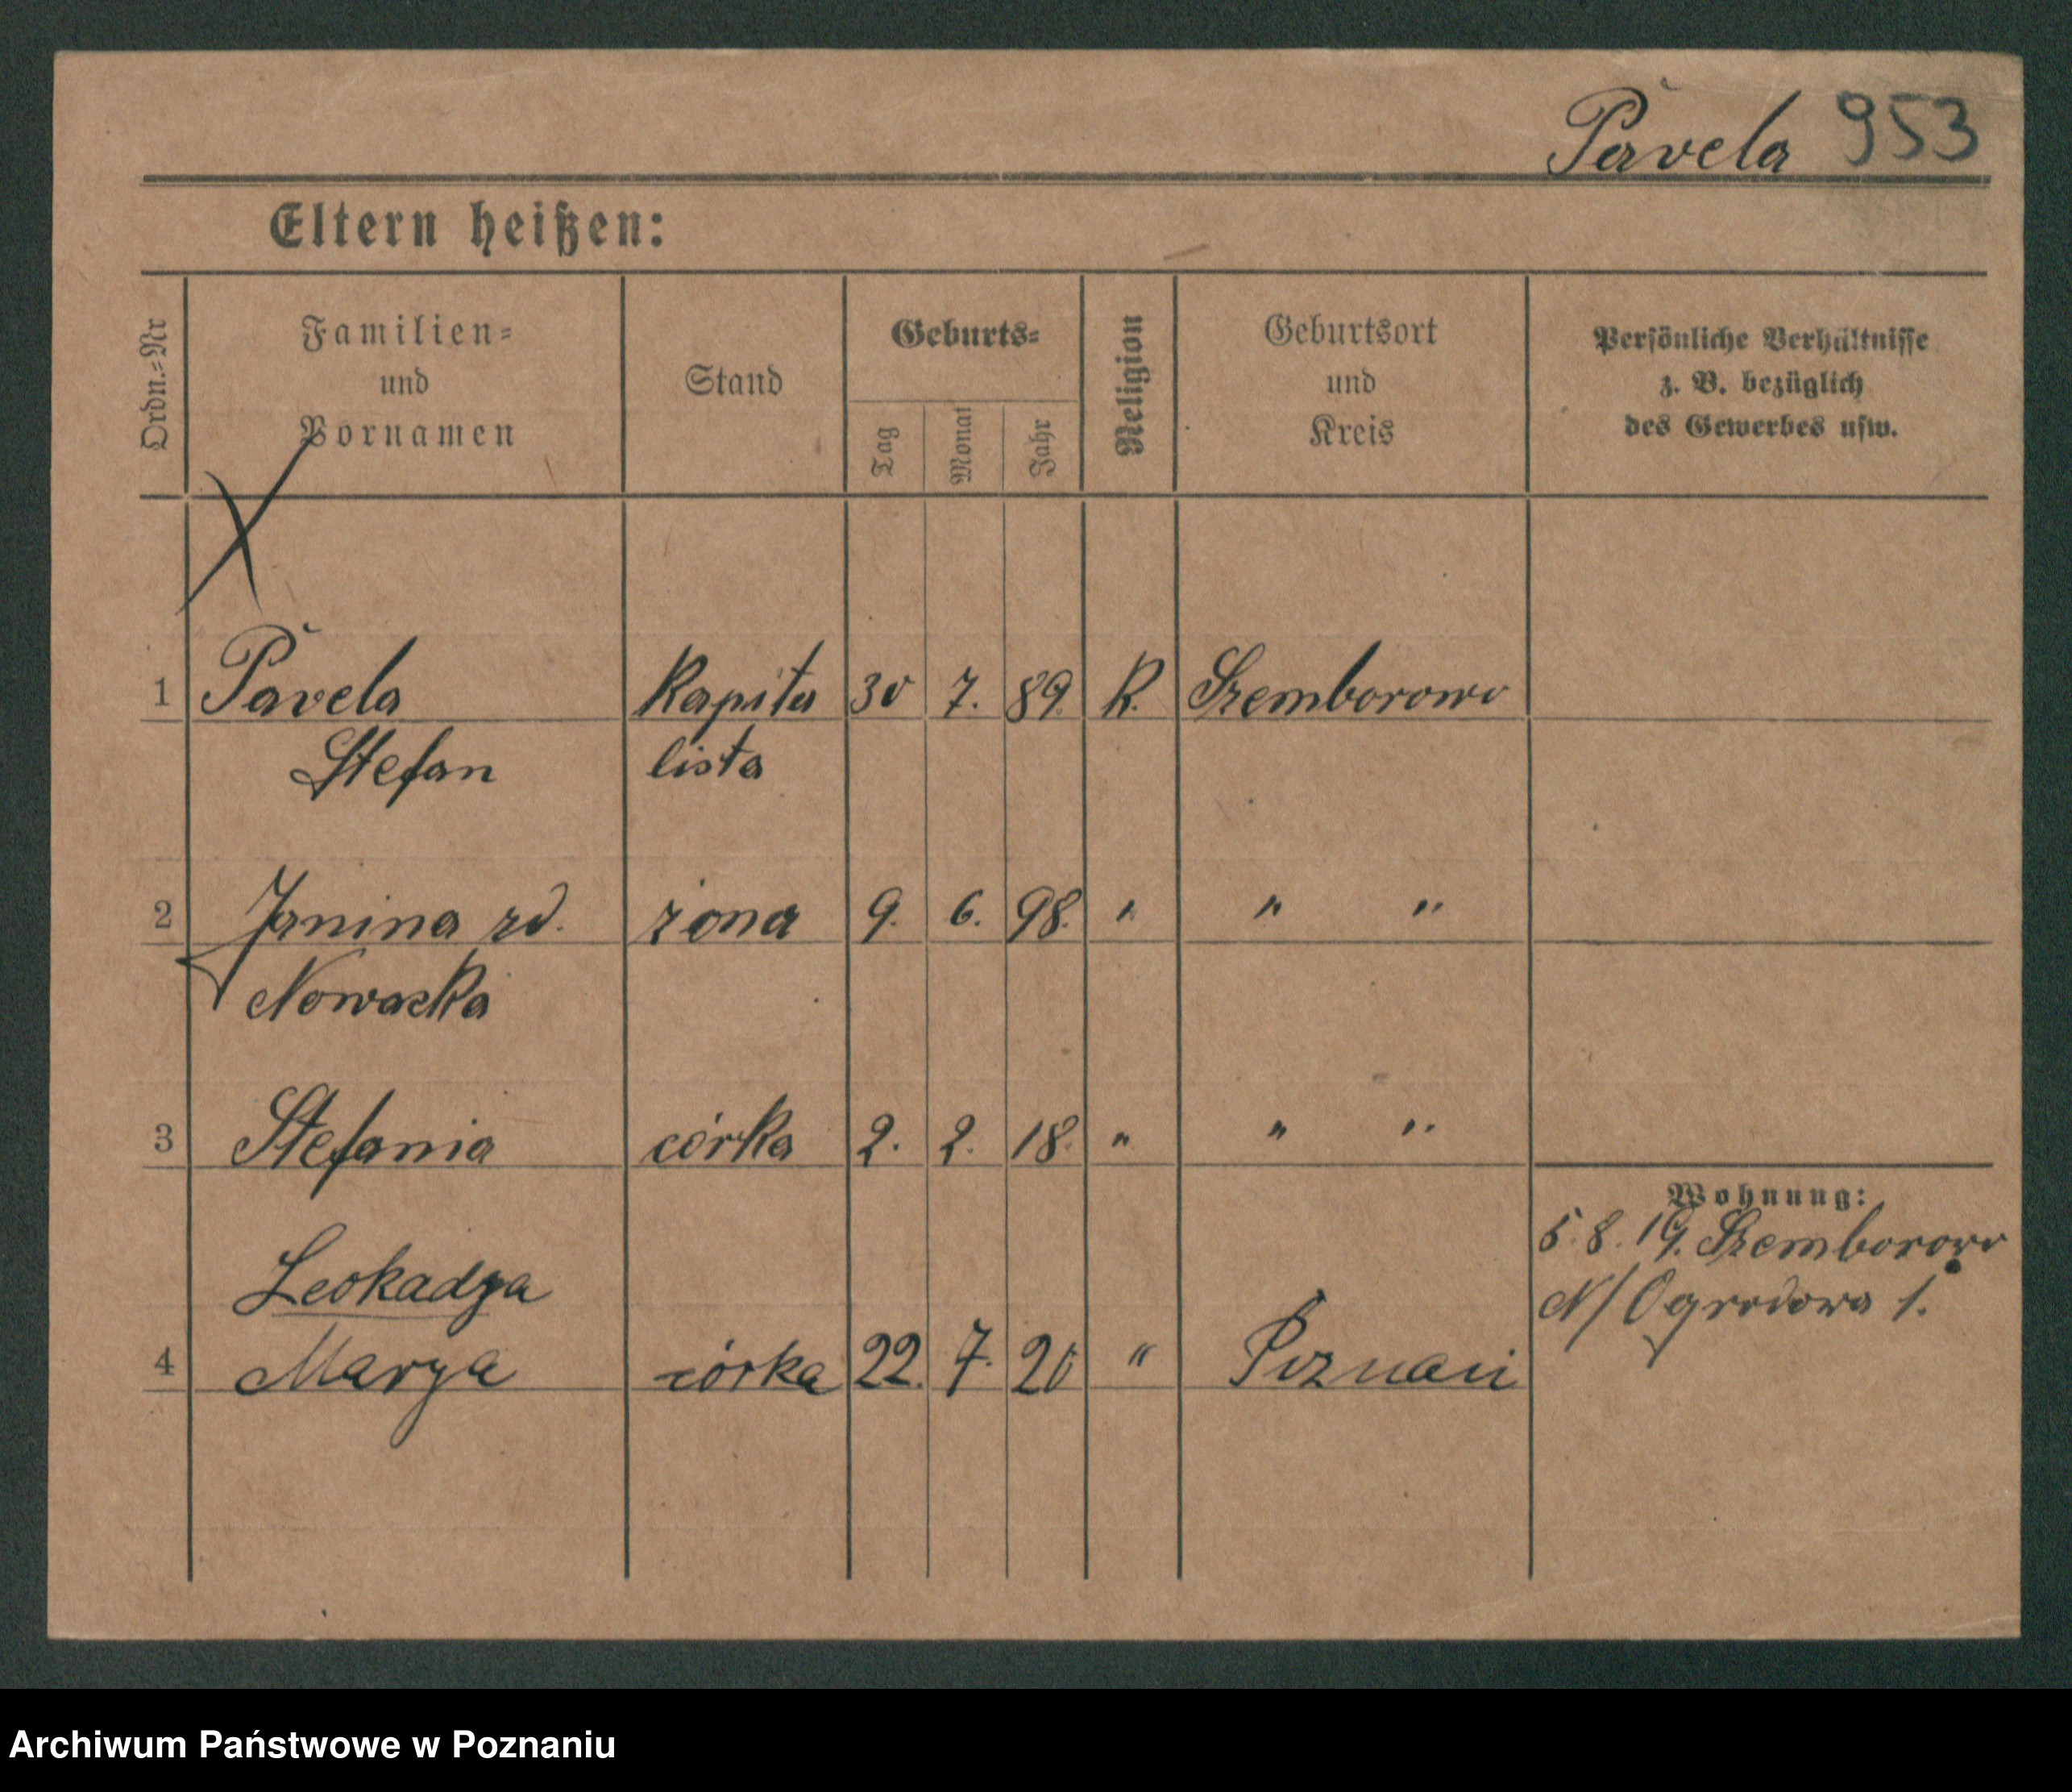 Pavela 953
Eltern heißen:
Ordn.=Nr
Familien=
und
Vornamen
Stand
Geburts=
Tag
Monat
Jahr
Religion
Geburtsort
und
Kreis
Persönliche Verhältnisse
z. B. bezüglich
des Gewerbes usw.
1 Pavela Kapita 30 7. 89. K. Szemborowo
Stefan lista
2 Janina rd. żona 9. 6. 98. " " "
Nowacka
3 Stefania córka 2. 2. 18. " " "
Wohnung:
5.8.19. Szemborowo
N/ Ogrodowa 1.
Leokadya
4 Marya córka 22. 7. 20 " Poznań
Archiwum Państwowe w Poznaniu